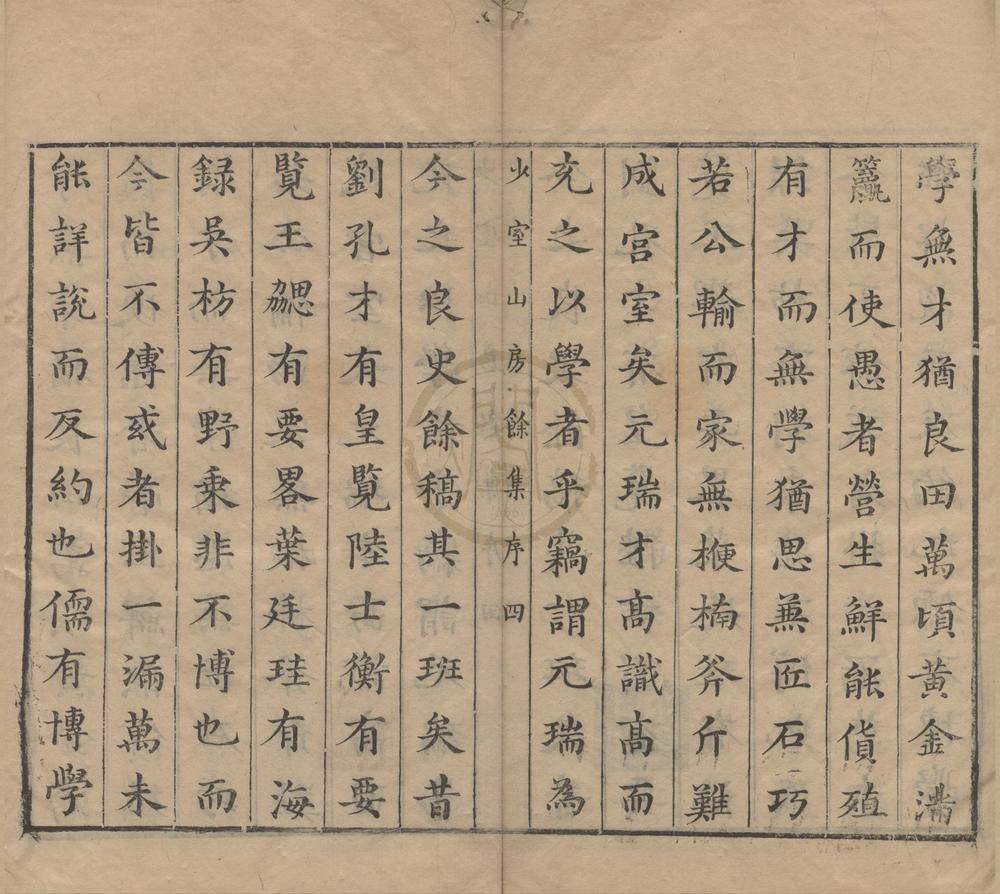 學無才猶良田萬頃黃金滿
籯而使愚者營生鮮能貨殖
有才而無學猶思兼匠石巧
若公輸而家無楩楠斧斤難
成宮室矣元瑞才高識高而
充之以學者乎竊謂元瑞為
少室山房餘集序 四
今之良史餘稿其一班矣昔
劉孔才有皇覽陸士衡有要
覽王勰有要畧葉廷珪有海
錄吳枋有野乘非不博也而
今皆不傳或者掛一漏萬未
能詳說而反約也儒有博學